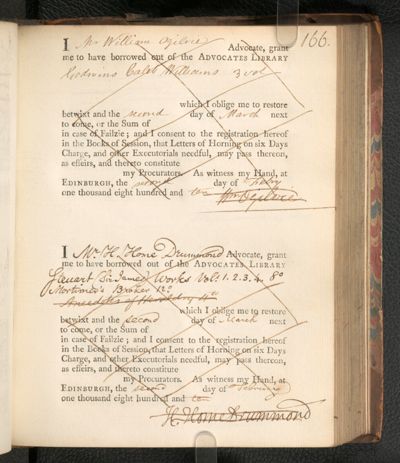 166.
I Mr William Ogilvie Advocate, grant
me to have borrowed out of the ADVOCATES LIBRARY
Godwins Caleb Williams 3 vol
which I oblige me to restore
betwixt and the second day of March next
to come, or the Sum of
in case of Failzie; and I consent to the registration hereof
in the Books of Session, that Letters of Horning on six Days
Charge, and other Executorials needful, may pass thereon,
as effeirs, and thereto constitute
my Procurators. As witness my Hand, at
EDINBURGH, the second day of
one thousand eight hundred and ten
Wm Ogilvie
I Mr. H. Home Drummond Advocate, grant
me to have borrowed out of the ADVOCATES LIBRARY
Steuart Sir James Works Vol. 1. 2. 3. 4. 8o
Mortimer's Broker 12o
Anecdotes of Heraldry 4to
which I oblige me to restore
betwixt and the second day of March next
to come, or the Sum of
in case of Failzie; and I consent to the registration hereof
in the Books of Session, that Letters of Horning on six Days
Charge, and other Executorials needful, may pass thereon,
as effeirs, and thereto constitute
my Procurators. As witness my Hand, at
EDINBURGH, the second day of February
one thousand eight hundred and ten
H. Home Drummond